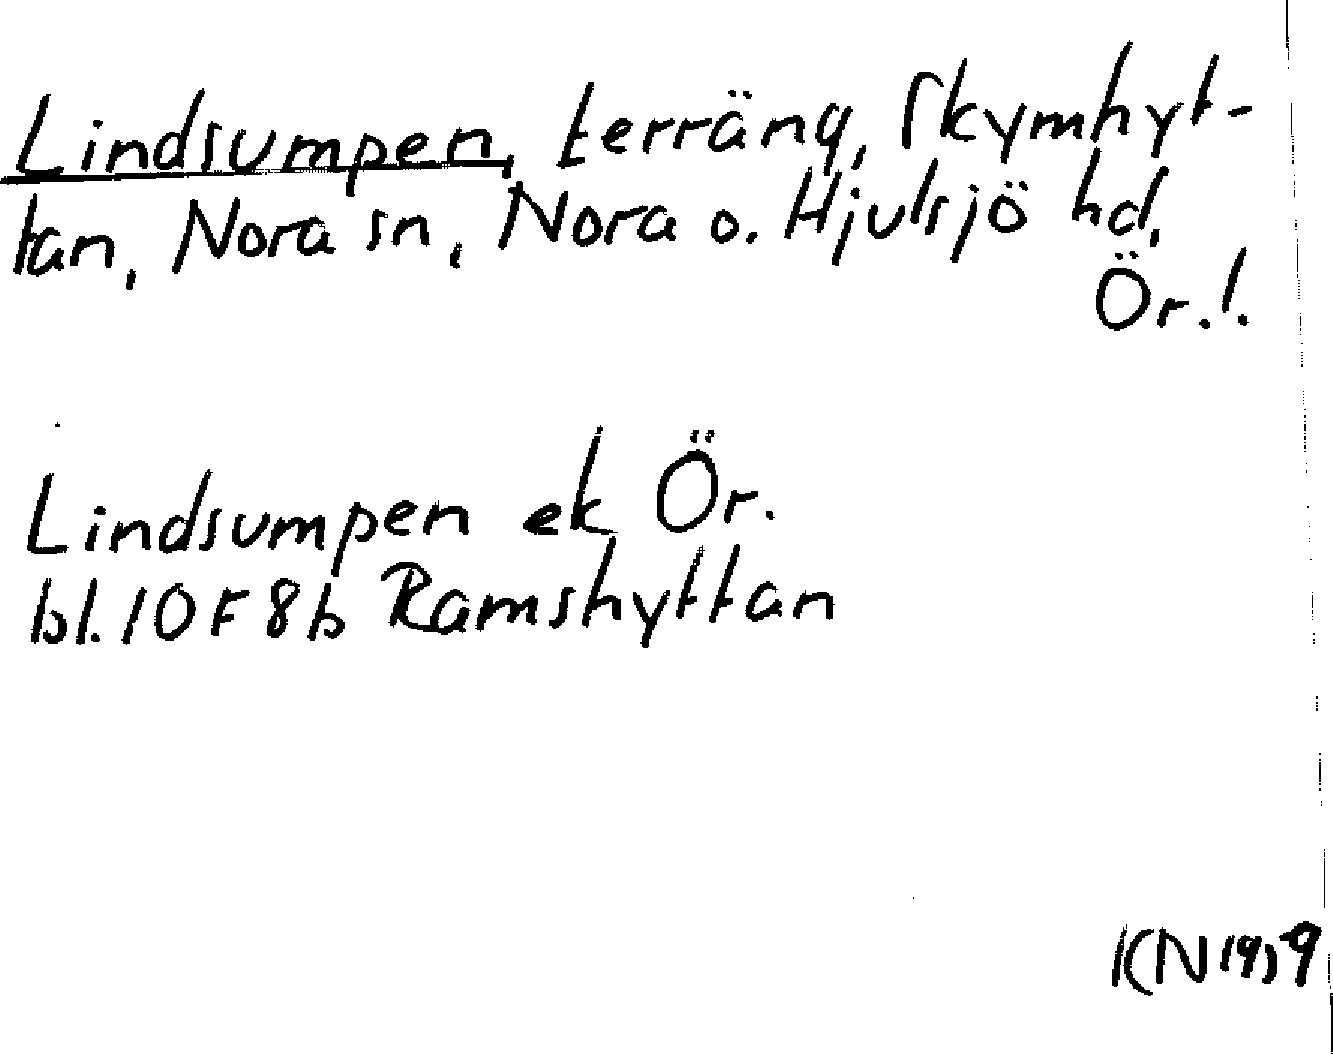 Lindsumpen, terräng, Skymhyt-
tan, Nora sn, Nora o. Hjulsjö hd,
Ör.!.
Lindsumpen ek Ör.
bl. 10 F 8b Ramshyttan
KN